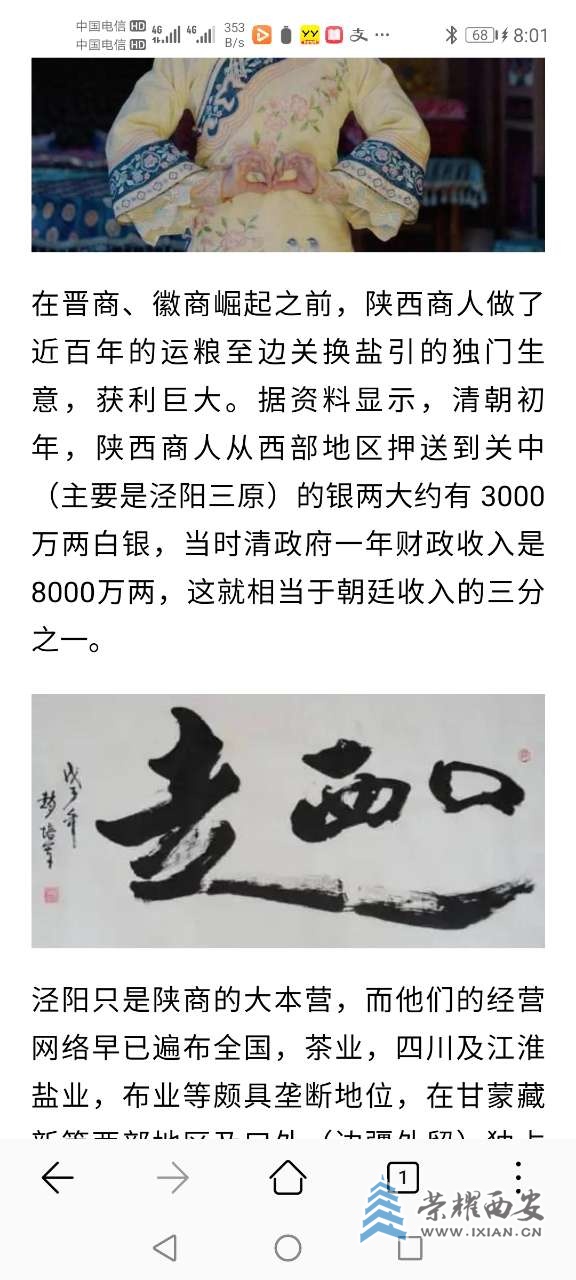 中国电信 HD 4G 4G 353 YY 支 ··· 68 8:01
中国电信 HD B/s
在晋商、徽商崛起之前，陕西商人做了
近百年的运粮至边关换盐引的独门生
意，获利巨大。据资料显示，清朝初
年，陕西商人从西部地区押送到关中
（主要是泾阳三原）的银两大约有 3000
万两白银，当时清政府一年财政收入是
8000万两，这就相当于朝廷收入的三分
之一。
走西口
泾阳只是陕商的大本营，而他们的经营
网络早已遍布全国，茶业，四川及江淮
盐业，布业等颇具垄断地位，在甘蒙藏
新等西部地区及口外（边疆外贸）独占
1
荣耀西安
WWW.IXIAN.CN